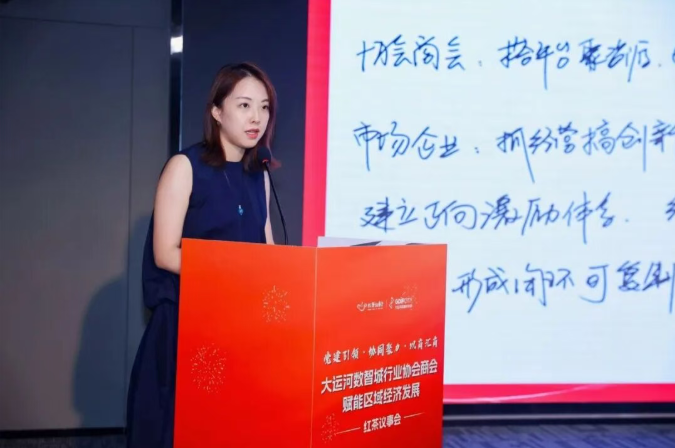 协会商会：搭平台聚资源、
市场企业：抓经营搞创新
建立正向激励体系．
形成闭环可复制
党建引领·协同聚力·以商汇商
大运河数智城行业协会商会
赋能区域经济发展
红茶议事会